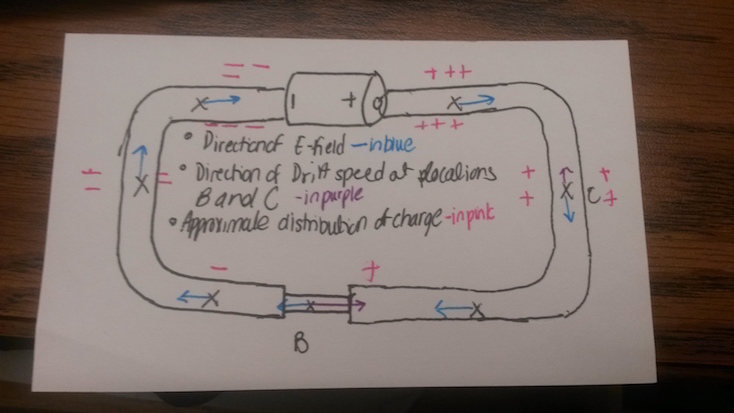 − − −
+ + +
− +
− − −
+ + +
• Direction of E-field - in blue
• Direction of Drift speed at locations
B and C - in purple
• Approximate distribution of charge - in pink
C
B